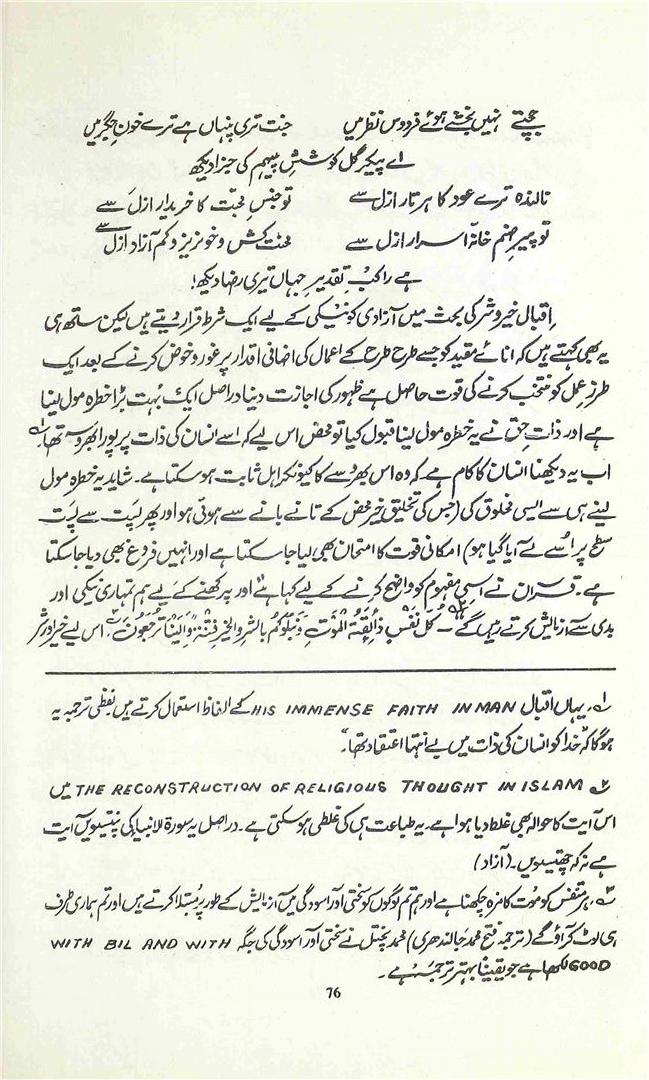 جچتے نہیں بخشے ہوئے فردوس نظر میں جنت تری پنہاں ہے ترے خونِ جگر میں
اے پیکرِ گل کوششِ پیہم کی جزا دیکھ
نالندہ ترے عود کا ہر تار ازل سے تو جنسِ محبّت کا خریدار ازل سے
تو پیرِ صنم خانۂ اسرار ازل سے محنت کش و خونریز و کم آزار ازل سے
ہے راکبِ تقدیرِ جہاں تیری رضا دیکھ!
اِقبال خیر و شر کی بحث میں آزادی کو نیکی کے لیے ایک شرط قرار دیتے ہیں لیکن ساتھ ہی
یہ بھی کہتے ہیں کہ انائے مقید کو جسے طرح طرح کے اعمال کی اضافی اقدار پر غور و خوض کرنے کے بعد ایک
طرزِ عمل کو منتخب کرنے کی قوت حاصل ہے ظہور کی اجازت دینا دراصل ایک بُہت بڑا خطرہ مول لینا
ہے اور ذاتِ حق نے یہ خطرہ مول لینا قبول کیا تو محض اس لیے کہ اُسے انسان کی ذات پر پورا بھروسہ تھا۱؎
اب یہ دیکھنا انسان کا کام ہے کہ وہ اس بھروسے کا کیونکر اہل ثابت ہوسکتا ہے۔ شاید یہ خطرہ مول
لینے ہی سے ایسی مخلوق کی (جس کی تخلیق خیرِ محض کے تانے بانے سے ہوئی ہو اور پھر لپست سے لپست
سطح پر اُسے لے آیا گیا ہو) امکانی قوت کا امتحان بھی لیا جاسکتا ہے اور انہیں فروغ بھی دیا جاسکتا
ہے۔ قرآن نے اسی مفہوم کو واضح کرنے کے لیے کہا ہے اور پرکھنے کے لیے ہم تمہاری نیکی اور
بدی سے آزمایش کرتے رہیں گے۲؎ — کُلُّ نَفْسٍ ذَآئِقَۃُ الْمَوْتِ وَنَبْلُوکُم بِالشَّرِّ وَالْخَیْرِ فِتْنَۃً وَاِلَیْنَا تُرْجَعُونَ۳؎۔ اس لیے خیر اور شر
۱؎ یہاں اقبال HIS IMMENSE FAITH IN MAN کے الفاظ استعمال کرتے ہیں لفظی ترجمہ یہ
ہوگا کہ "خدا کو انسان کی ذات میں بے انتہا اعتقاد تھا۔"
۲؎ THE RECONSTRUCTION OF RELIGIOUS THOUGHT IN ISLAM میں
اس آیت کا حوالہ بھی غلط دیا ہوا ہے۔ یہ طباعت ہی کی غلطی ہوسکتی ہے۔ دراصل یہ سورۃ لانبیا کی پینتیسویں آیت
ہے نہ کہ چھتیسویں۔ (آزاد)
۳؎ ہر متنفس کو موت کا مزہ چکھنا ہے اور ہم تم لوگوں کو سختی اور آسودگی میں آزمایش کے طور پر مبتلا کرتے ہیں اور تم ہماری طرف
ہی لوٹ کر آؤ گے (ترجمہ فتح محمد جالندھری) محمد پکتھل نے سختی اور آسودگی کی جگہ WITH BIL AND WITH
GOOD لکھا ہے جو یقینا بہتر ترجمہ ہے۔
76